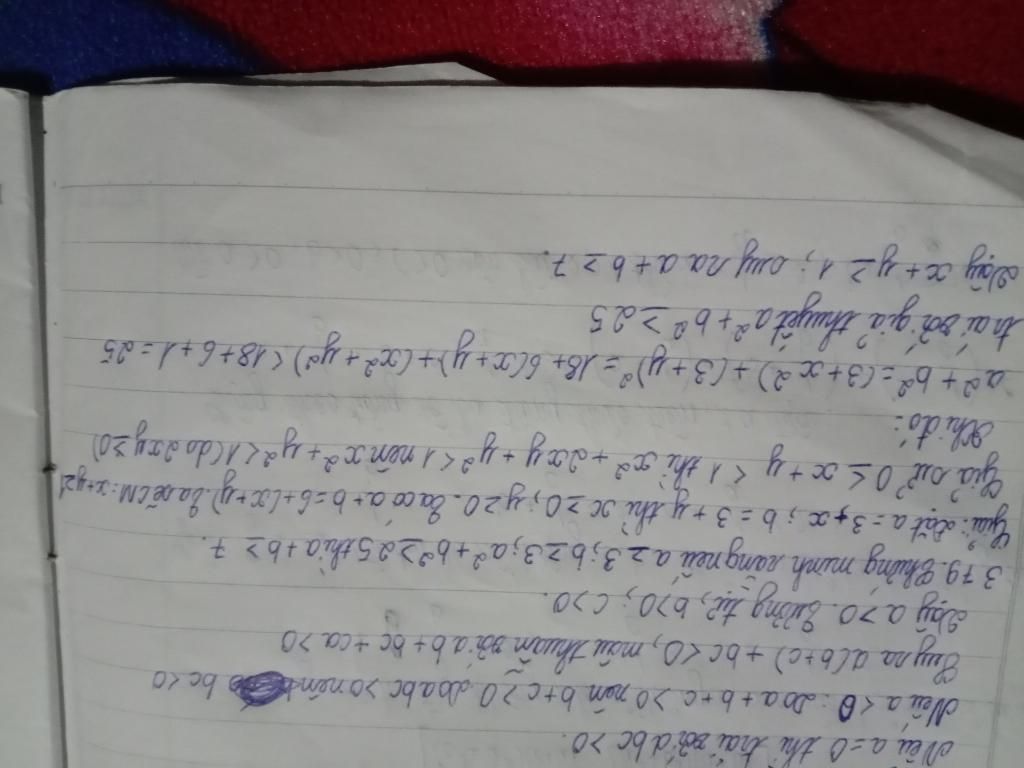 Nếu a=0 thì trái với abc >0.
Nếu a < 0: Do a+b+c >0 nên b+c >0. Do abc >0 nên bc<0
Suy ra a(b+c) + bc <0, mâu thuẫn với ab+bc+ca>0
Vậy a >0. Tương tự, b>0; c>0.
379. Chứng minh rằng nếu a ≥ 3; b ≥ 3; a² + b² ≥ 25 thì a+b ≥ 7.
Giải: Đặt a = 3+x; b = 3+y thì x ≥0; y ≥0. Ta có a+b = 6+(x+y). Ta sẽ CM: x+y≥1
Giả sử 0 ≤ x+y < 1 thì x² + 2xy + y² <1 nên x² + y² <1 (do 2xy ≥0)
Khi đó:
a² + b² = (3+x²) + (3+y)² = 18+6(x+y)+(x²+y²) < 18+6+1 = 25
trái với giả thuyết a² + b² ≥ 25
Vậy x+y ≥ 1; suy ra a+b ≥ 7.